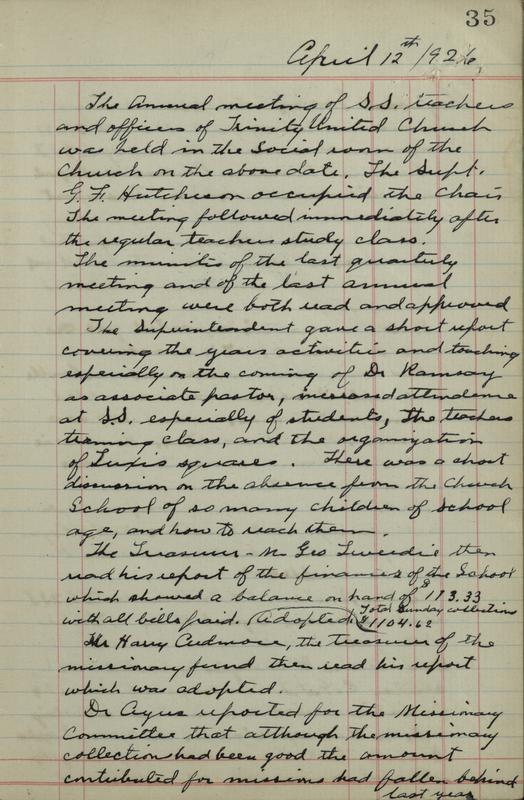 35
April 12th 1926,
The Annual meeting of S.S. teachers
and officers of Trinity United Church
was held in the Social room of the
Church on the above date. The Supt.
G. F. Hutcheson occupied the Chair
The meeting followed immediately after
the regular teachers study class.
The minutes of the last quarterly
meeting and of the last annual
meeting were both read and approved
The Superintendent gave a short report
covering the years activities and touching
especially on the coming of Dr Ramsay
as associate pastor, increased attendance
at S.S. especially of students, the teachers
training class, and the organization
of Tuxis squares. There was a short
discussion on the absence from the Church
School of so many children of School
age, and how to reach them.
The Treasurer - Mr Geo Tweedie then
read his report of the finances of the School
which showed a balance on hand of $113.33
with all bills paid. Adopted. (Total Sunday collections
$1104.62
Mr Harry Cudmore, the treasurer of the
missionary fund then read his report
which was adopted.
Dr Ayres reported for the Missionary
Committee that although the missionary
collection had been good the amount
contributed for missions had fallen behind
last year